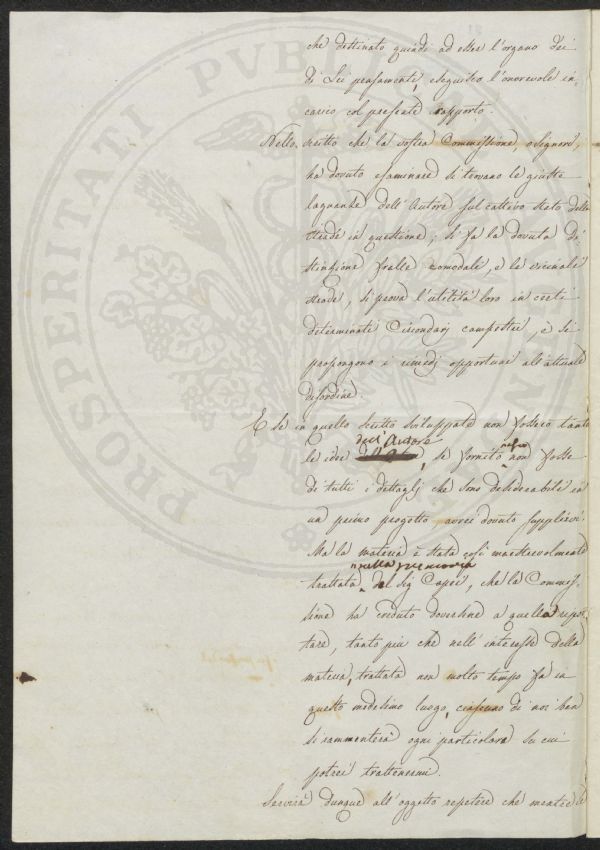 che destinato quindi ad esser l'organo dei
di Lei pensamenti, eseguisco l'onorevole in-
carico col presente rapporto.
Nello scritto che la vostra Commissione, o Signori,
ha dovuto esaminare si trovano le giuste
lagnanze dell'Autore sul cattivo stato delle
strade in questione; si fa la dovuta di-
stinzione fralle comodali, e le vicinali
strade, si prova l'utilità loro in certi
determinati Circondarj campestri, e si
propongono i rimedj opportuni all'attuale
disordine.
E se in quello scritto sviluppate non fossero tante
le idee dell'Autore, se fornito non fosse
di tutti i dettaglj che sono desiderabili in
un primo progetto avrei dovuto supplirvi.
Ma la materia è stata così maestrevolmente
trattata nella memoria del Sig Capei, che la Commis-
sione ha creduto doversene a quella repor-
tare, tanto più che nell'interesse della
materia, trattata non molto tempo fa in
questo medesimo luogo, ciascuno di noi ben
si rammenterà ogni particolare su cui
potrei trattenermi.
Servirà dunque all'oggetto repetere che mentre le
PROSPERITATI PUBLICAE